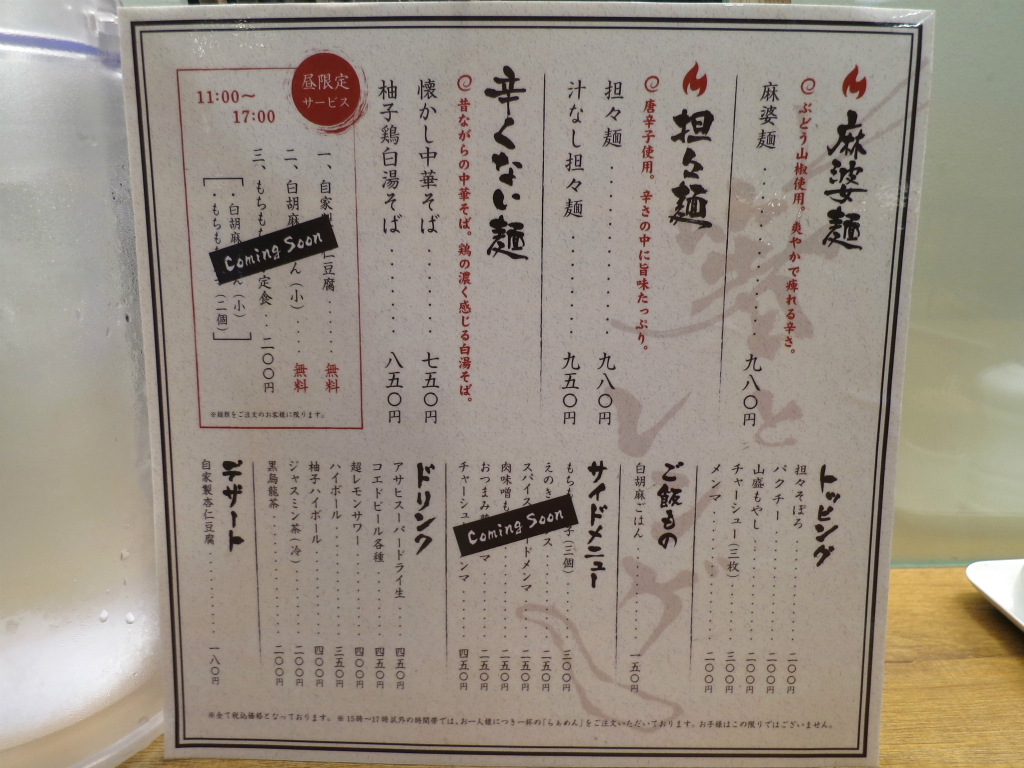 麻婆麺
ぶどう山椒使用。爽やかで痺れる辛さ。
麻婆麺 九八〇円
担々麺
唐辛子使用。辛さの中に旨味たっぷり。
担々麺 九八〇円
汁なし担々麺 九五〇円
辛くない麺
昔ながらの中華そば。鶏の濃く感じる白湯そば。
懐かし中華そば 七五〇円
柚子鶏白湯そば 八五〇円
昼限定
サービス
11:00〜
17:00
一、自家製 仁豆腐 無料
二、白胡麻 ん（小） 無料
三、もちも 定食 二〇〇円
・白胡麻 ん（小）
・もちも （二個）
Coming Soon
※麺類をご注文のお客様に限ります。
トッピング
担々そぼろ 二〇〇円
パクチー 二〇〇円
山盛もやし 二〇〇円
チャーシュー（三枚） 三〇〇円
メンマ 二〇〇円
ご飯もの
白胡麻ごはん 一五〇円
サイドメニュー
もち 子（三個） 三〇〇円
えのき ス 二五〇円
スパイス ドメンマ 二五〇円
肉味噌も 二五〇円
おつまみ マ 二五〇円
チャーシュ ンマ 四五〇円
Coming Soon
ドリンク
アサヒスーパードライ生 四五〇円
コエドビール各種 四五〇円
超レモンサワー 四〇〇円
ハイボール 三五〇円
柚子ハイボール 四〇〇円
ジャスミン茶（冷） 二〇〇円
黒烏龍茶 二〇〇円
デザート
自家製杏仁豆腐 一八〇円
※全て税込価格となっております。※15時〜17時以外の時間帯では、お一人様につき一杯の「らぁめん」をご注文いただいております。お子様はこの限りではございません。